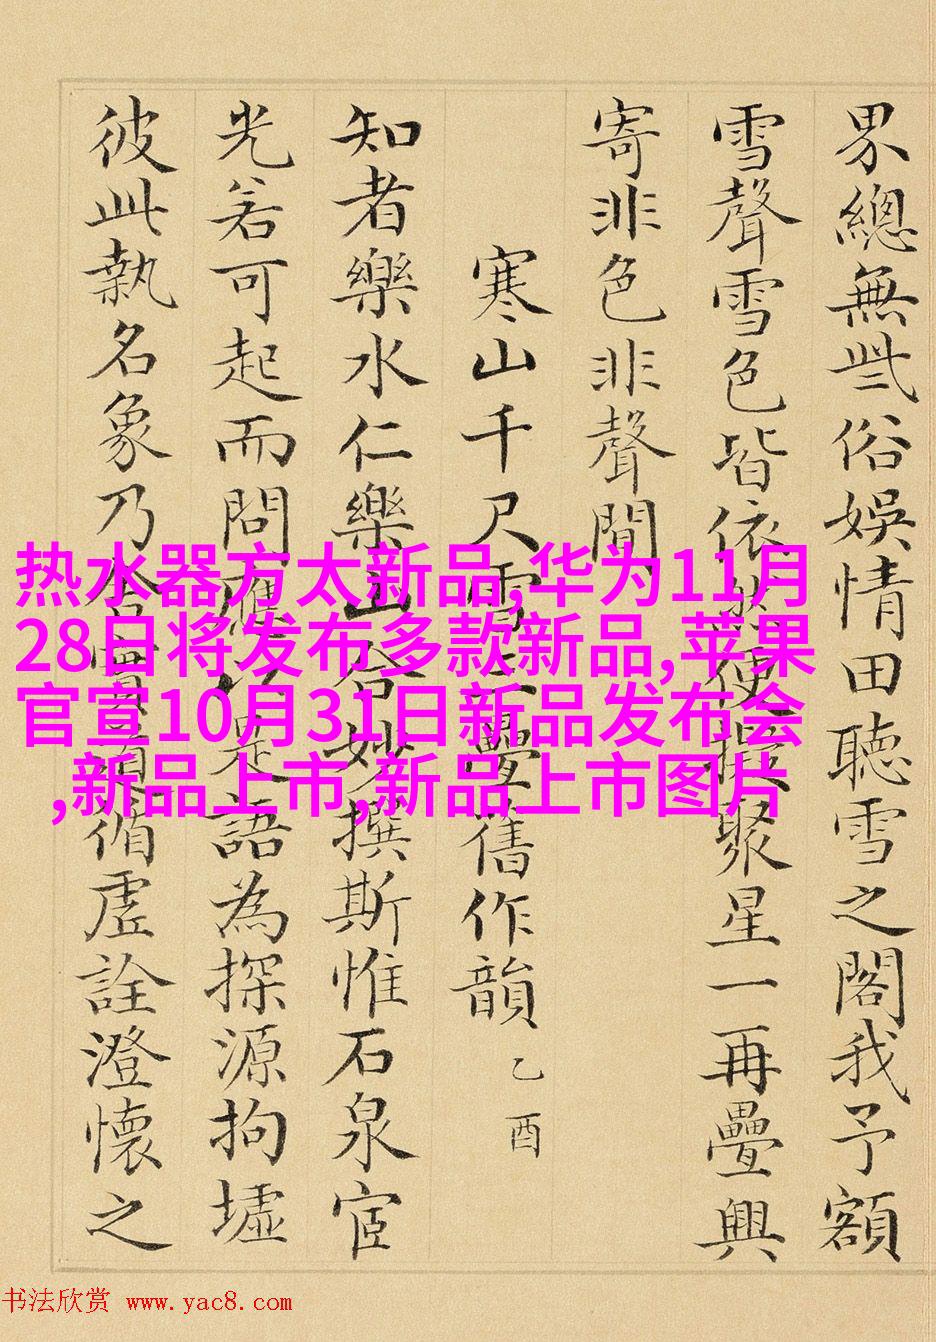 界總無些俗娛情田聽雪之閣我予額
雪聲雪色皆依然便擬聚星一再疊興
寄非色非聲間
寒山千尺雪三疊舊作韻 乙酉
知者樂水仁樂山合妙撰斯惟石泉宦
光若可起而問應以是語為探源拘墟
彼此執名象乃
循虛詮澄懷之
热水器方太新品,华为11月
28日将发布多款新品,苹果
官宣10月31日新品发布会
,新品上市,新品上市图片
书法欣赏 www.yac8.com